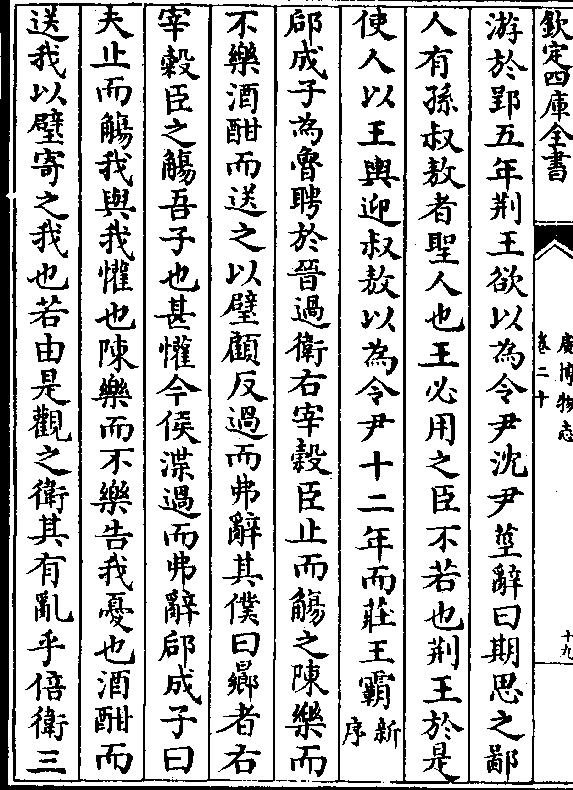 欽定四庫全書
廣博物志
卷二十
十九
游於郢五年荆王欲以為令尹沈尹莖辭曰期思之鄙
人有孫叔敖者聖人也王必用之臣不若也荆王於是
使人以王輿迎叔敖以為令尹十二年而莊王霸新序
郈成子為魯聘於晉過衛右宰糓臣止而觴之陳樂而
不樂酒酣而送之以璧顧反過而弗辭其僕曰曏者右
宰糓臣之觴吾子也甚懽今侯渫過而弗辭郈成子曰
夫止而觴我與我懽也陳樂而不樂告我憂也酒酣而
送我以璧寄之我也若由是觀之衛其有亂乎倍衛三